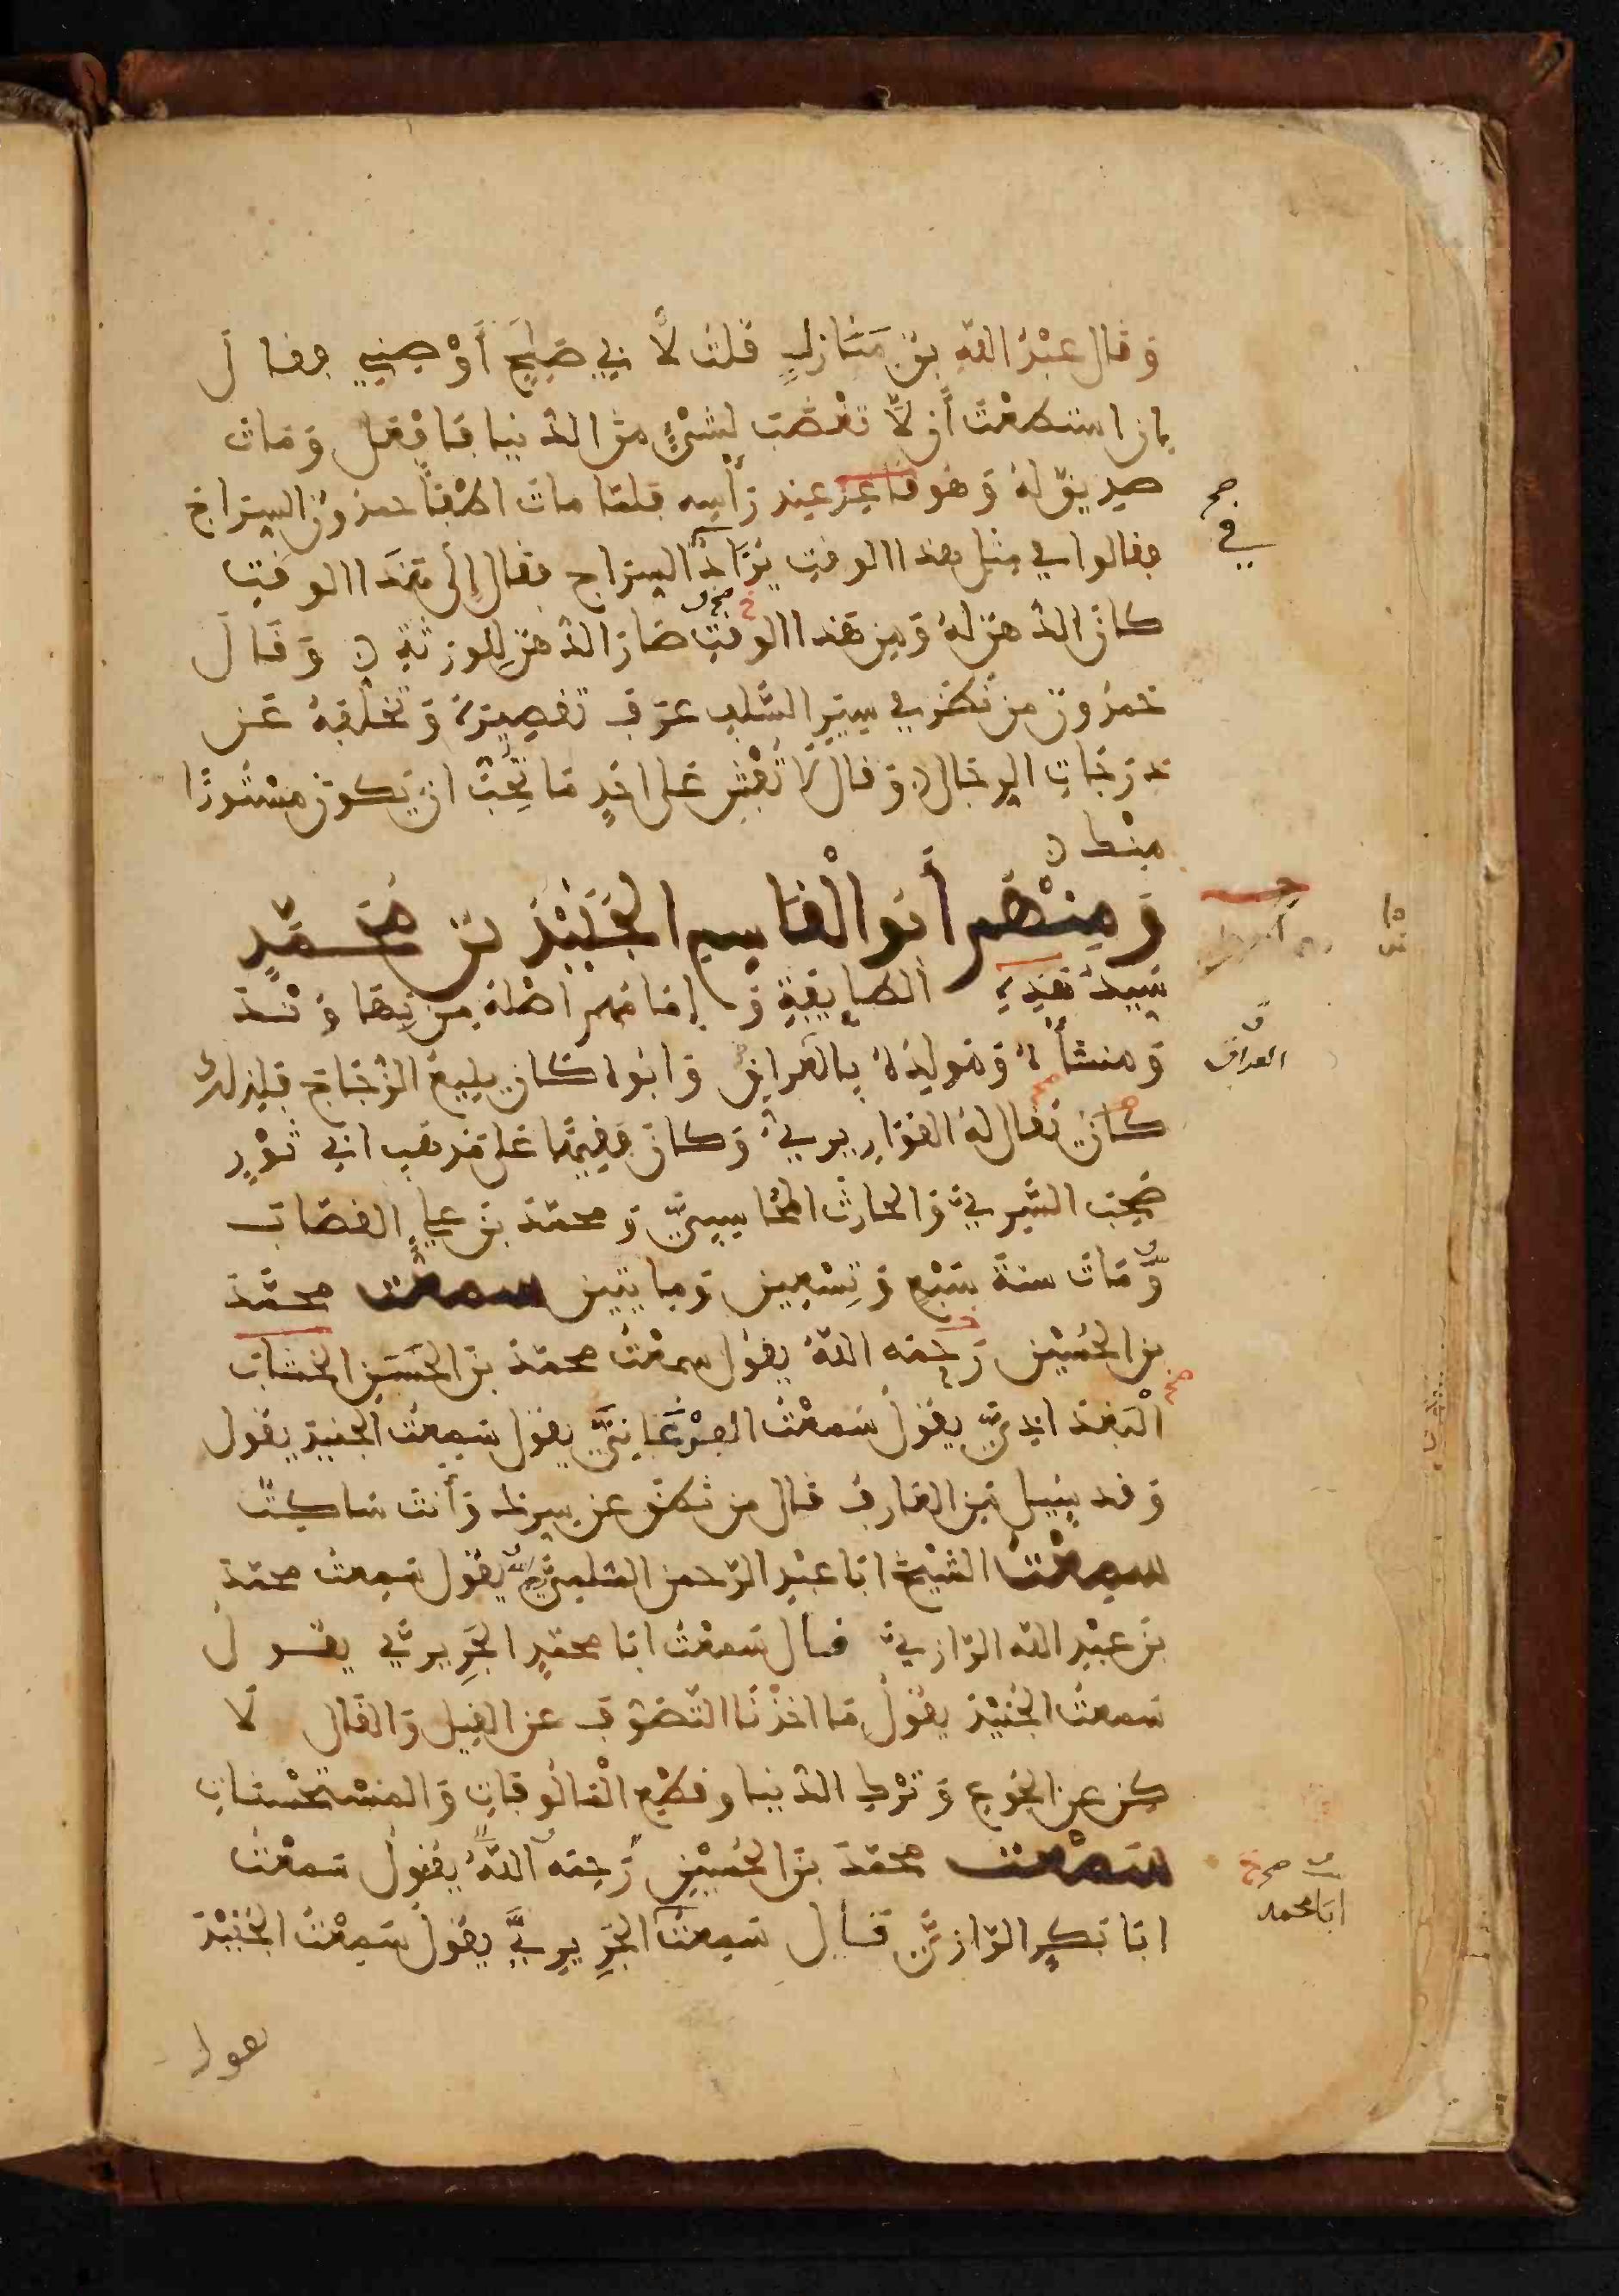 وَقَال عَبْدُ اللَّهِ بْنُ مَنَازِلٍ قُلتُ لأَبِي صَالِحٍ أَوْصِنِي فقال
إن استطعْتَ أن لّا تَغْضَبَ لِشَيْءٍ من الدنيا فافْعَل وَمَاتَ
صديق لهُ وَهُو قاعد عِند رَأسِه فلمّا مات اطْفَأ حمدون السِرَاج
فقالوا في مثل هذا الوقت يُزَادُ السِرَاج فقال إلى هَذَا الوقتِ
كان الدهن لهُ وَمِن هذا الوقتِ صَار الدهن لِلورثةِ ۞ وَقَالَ
حَمدُون من نظَر في سِيَرِ السَّلَفِ عَرَفَ تَقصِيرَهُ وَتخلّفهُ عَن
دَرَجَاتِ الرِجَال ۞ وَقال لا تُفْشِ عَلى احَدٍ مَا تُحِبُّ ان يَكونَ مَسْتُورًا
مِنْك ۞
وَمِنْهُم أَبُو الْقَاسِم الجُنَيْدُ بْنُ مُحَمَّدٍ
سَيِّدُ هَذِهِ الطايِفةِ وَإمَامُهم اصْلهُ مِن نِهَاوَنْد
وَمنشأهُ وَمَولِدُهُ بِالعِرَاقِ وَابُوه كان يبيع الزُجَاجَ فلِذلِك
كان يُقال لهُ القَوَاريري وَكان فَقِيهًا عَلى مَذهَبِ ابي ثَوْرٍ
صَحِبَ السّرِيَّ وَالحارِثَ المُحَاسِبِيَّ وَمحمّدَ بْنَ عَلِي القصّابَ
وَمَاتَ سنةَ سَبْعٍ وَتِسْعِين وَمايتين سمعت محمّدَ
بن الحُسَيْنِ رَحِمَه اللهُ يقول سمعْتُ محمّدَ بنَ الحُسَيْنِ الخشابَ
الْبَغداديَّ يقول سَمعْتُ الفَرْغَانِيَّ يقول سَمِعتُ الجنيدَ يقول
وَقد سُئِل مَنِ العَارِفُ قال من نطَق عن سِرِّك وَأنت سَاكِتٌ
سمعت الشيْخَ ابَا عَبْدِ الرّحمن السُلمِيَّ يقول سَمِعتُ محمّدَ
بن عَبْدِ اللهِ الرّازيَّ قال سَمعْتُ ابَا محمّدٍ الجُرَيريَّ يقول
سَمعتُ الجُنَيْدَ يقول مَا اخذْنَا التَّصَوُّفَ عن القِيل وَالقَال لَا
كِن عن الجُوعِ وَتَرْكِ الدنيا وقطْعِ المَالُوفَاتِ وَالمُسْتَحْسَنَاتِ
سَمعْت محمّدَ بْنَ الحُسَيْنِ رَحِمَه اللهُ يَقُول سَمِعْتُ
ابَا بَكرٍ الرّازيَّ قَال سَمِعتُ الجُرَيريَّ يقولُ سَمِعْتُ الجُنَيْدَ
يقول
صح
في
العراق
صح
ابا محمد